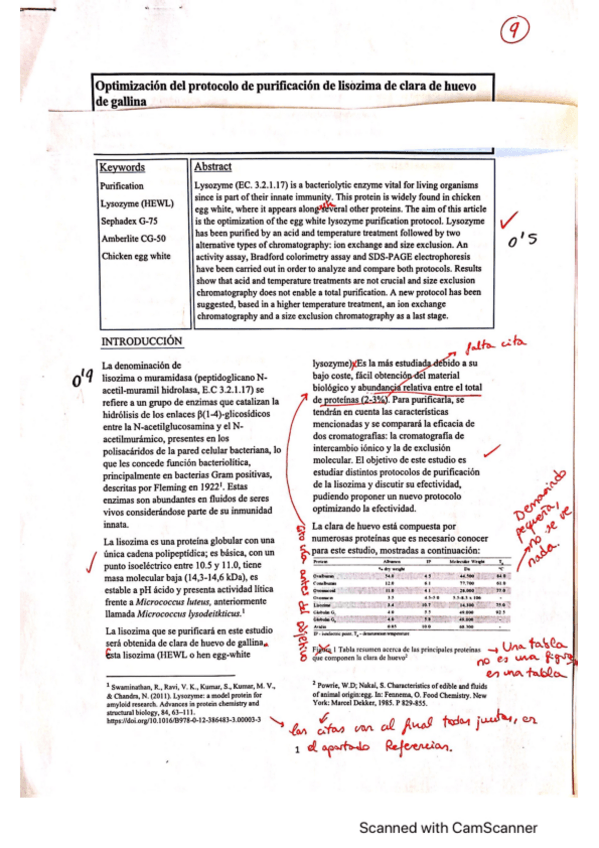 9
Optimización del protocolo de purificación de lisozima de clara de huevo
de gallina
Keywords
Purification
Lysozyme (HEWL)
Sephadex G-75
Amberlite CG-50
Chicken egg white
Abstract
Lysozyme (EC. 3.2.1.17) is a bacteriolytic enzyme vital for living organisms
since is part of their innate immunity. This protein is widely found in chicken
egg white, where it appears along several other proteins. The aim of this article
is the optimization of the egg white lysozyme purification protocol. Lysozyme
has been purified by an acid and temperature treatment followed by two
alternative types of chromatography: ion exchange and size exclusion. An
activity assay, Bradford colorimetry assay and SDS-PAGE electrophoresis
have been carried out in order to analyze and compare both protocols. Results
show that acid and temperature treatments are not crucial and size exclusion
chromatography does not enable a total purification. A new protocol has been
suggested, based in a higher temperature treatment, an ion exchange
chromatography and a size exclusion chromatography as a last stage.
0'5
INTRODUCCIÓN
0'9
La denominación de
lisozima o muramidasa (peptidoglicano N-
acetil-muramil hidrolasa, E.C 3.2.1.17) se
refiere a un grupo de enzimas que catalizan la
hidrólisis de los enlaces β(1-4)-glicosídicos
entre la N-acetilglucosamina y el N-
acetilmurámico, presentes en los
polisacáridos de la pared celular bacteriana, lo
que les concede función bacteriolítica,
principalmente en bacterias Gram positivas,
descritas por Fleming en 1922¹. Estas
enzimas son abundantes en fluidos de seres
vivos considerándose parte de su inmunidad
innata.
La lisozima es una proteína globular con una
única cadena polipeptídica; es básica, con un
punto isoeléctrico entre 10.5 y 11.0, tiene
masa molecular baja (14,3-14,6 kDa), es
estable a pH ácido y presenta actividad lítica
frente a Micrococcus luteus, anteriormente
llamada Micrococcus lysodeitkticus.¹
La lisozima que se purificará en este estudio
será obtenida de clara de huevo de gallina,
Esta lisozima (HEWL o hen egg-white
¹ Swaminathan, R., Ravi, V. K., Kumar, S., Kumar, M. V.,
& Chandra, N. (2011). Lysozyme: a model protein for
amyloid research. Advances in protein chemistry and
structural biology, 84, 63–111.
https://doi.org/10.1016/B978-0-12-386483-3.00003-3
falta cita
lysozyme) Es la más estudiada debido a su
bajo coste, fácil obtención del material
biológico y abundancia relativa entre el total
de proteínas (2-3%). Para purificarla, se
tendrán en cuenta las características
mencionadas y se comparará la eficacia de
dos cromatografías: la cromatografía de
intercambio iónico y la de exclusión
molecular. El objetivo de este estudio es
estudiar distintos protocolos de purificación
de la lisozima y discutir su efectividad,
pudiendo proponer un nuevo protocolo
optimizando la efectividad.
La clara de huevo está compuesta por
numerosas proteínas que es necesario conocer
para este estudio, mostradas a continuación:
Demasiado
pequeña,
no se ve
nada.
Esto va antes del objetivo
Protein Albumen IP Molecular Weight
% dry weight Da °C
Figura 1 Tabla resumen acerca de las principales proteínas
que componen la clara de huevo²
Una tabla
no es una figura
es una tabla
² Powrie, W.D; Nakai, S. Characteristics of edible and fluids
of animal origin:egg. In: Fennema, O. Food Chemistry. New
York: Marcel Dekker, 1985. P 829-855.
las citas van al final todas juntas, en
el apartado Referencias.
1
Scanned with CamScanner